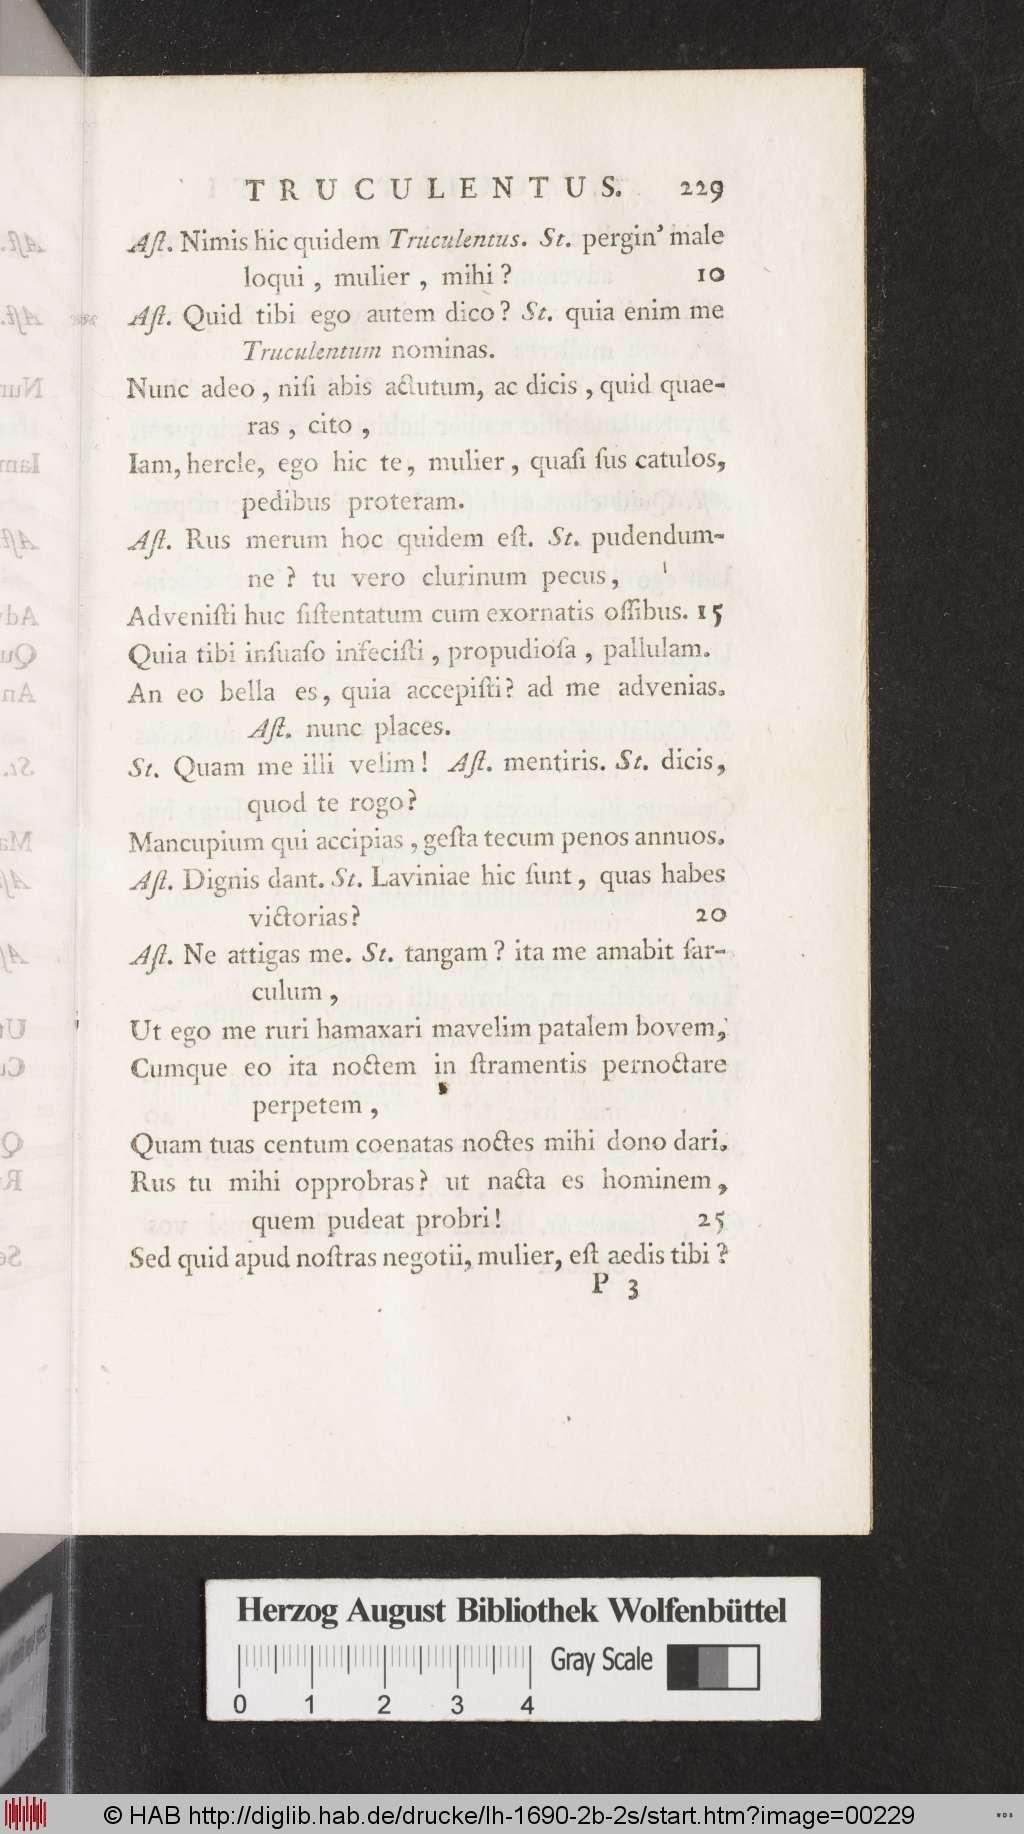 TRUCULENTUS. 229
Aſt. Nimis hic quidem Truculentus. St. pergin' male
loqui , mulier , mihi ? 10
Aſt. Quid tibi ego autem dico? St. quia enim me
Truculentum nominas.
Nunc adeo , niſi abis actutum, ac dicis , quid quae-
ras , cito ,
Iam, hercle, ego hic te, mulier, quaſi ſus catulos,
pedibus proteram.
Aſt. Rus merum hoc quidem eſt. St. pudendum-
ne ? tu vero clurinum pecus,
Adveniſti huc ſiſtentatum cum exornatis oſſibus. 15
Quia tibi inſuaſo infeciſti , propudioſa , pallulam.
An eo bella es, quia accepiſti? ad me advenias.
Aſt. nunc places.
St. Quam me illi velim! Aſt. mentiris. St. dicis,
quod te rogo?
Mancupium qui accipias , geſta tecum penos annuos.
Aſt. Dignis dant. St. Laviniae hic ſunt, quas habes
victorias? 20
Aſt. Ne attigas me. St. tangam ? ita me amabit ſar-
culum ,
Ut ego me ruri hamaxari mavelim patalem bovem,
Cumque eo ita noctem in ſtramentis pernoctare
perpetem ,
Quam tuas centum coenatas noctes mihi dono dari.
Rus tu mihi opprobras? ut nacta es hominem,
quem pudeat probri! 25
Sed quid apud noſtras negotii, mulier, eſt aedis tibi ?
P 3
Herzog August Bibliothek Wolfenbüttel
Gray Scale
0 1 2 3 4
© HAB http://diglib.hab.de/drucke/lh-1690-2b-2s/start.htm?image=00229